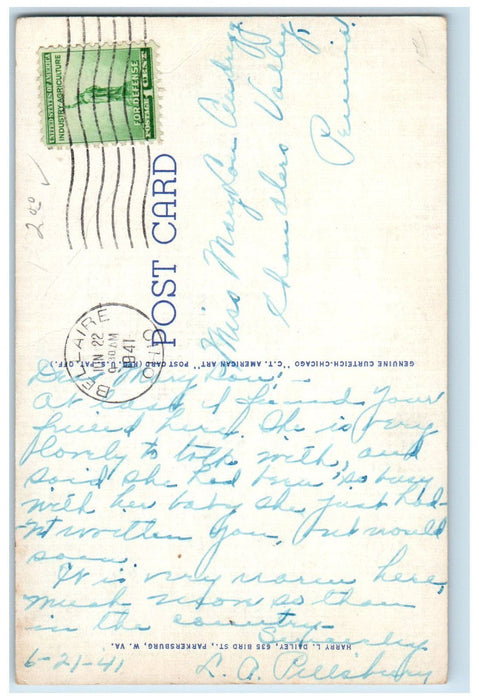 UNITED STATES OF AMERICA
INDUSTRY AGRICULTURE
FOR DEFENSE
POSTAGE 1 CENT
2 00
POST CARD
BELLAIRE
JUN 22
9:30 AM
1941
OHIO
Miss Mary Lou
Chandlers Valley,
Penna.
GENUINE CURTEICH-CHICAGO "C.T. AMERICAN ART" POST CARD (REG. U.S. PAT. OFF.)
Dear Mary Lou:-
At last I found your
friend here. She is very
lovely to talk with, and
said she had been so busy
with her baby she just had-
n't written you, but would
soon.
It is very warm here,
much more so than
in the country.
Sincerely
L. A. Pillsbury
6-21-41
HARRY L. DAILEY, 635 BIRD ST., PARKERSBURG, W. VA.